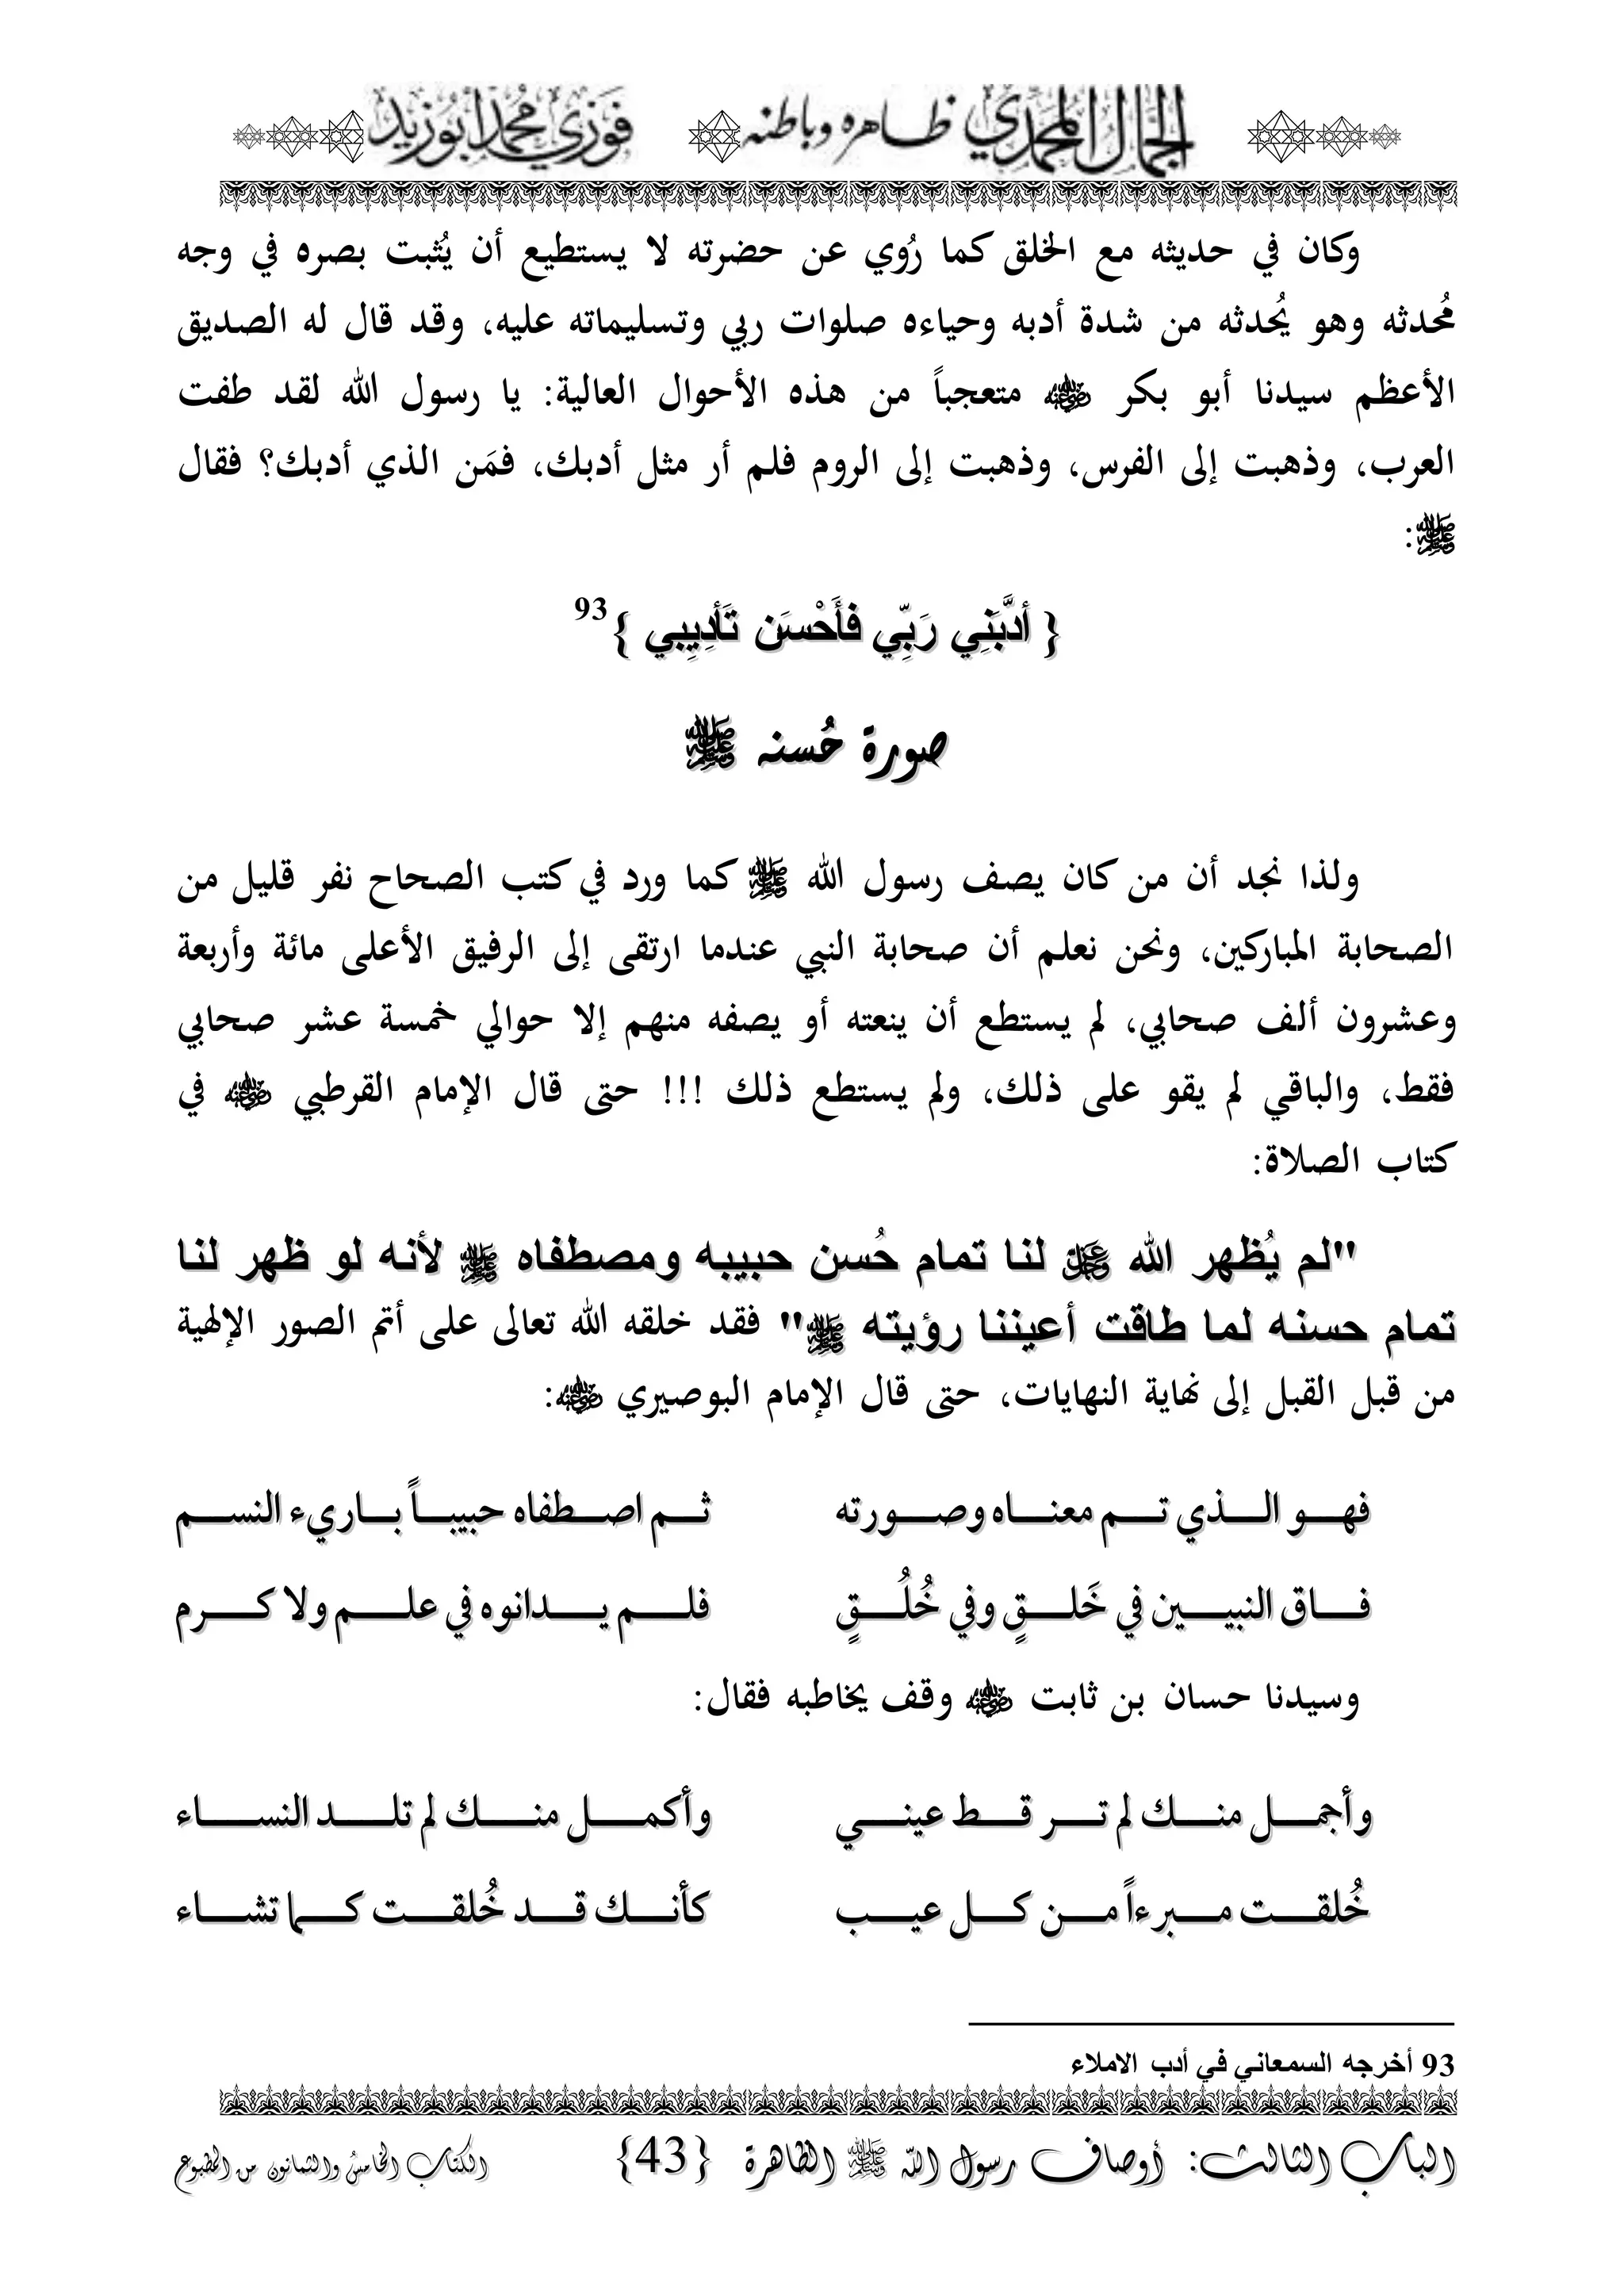 الجمال المحمدي ظاهره وباطنه فوزي محمد أبوزيد
وكان في حديثه مع الخلق كما رُوي عن حضرته لا يستطيع أن يُثبت بصره في وجه
مُحدثه وهو يُحدثه من شدة أدبه وحياءه صلوات ربي وتسليماته عليه، وقد قال له الصديق
الأعظم سيدنا أبو بكر رضي الله عنه متعجباً من هذه الأحوال العالية: يا رسول الله لقد طفت
العرب، وذهبت إلى الفرس، وذهبت إلى الروم فلم أر مثل أدبك، فمَن الذي أدبك؟ فقال
ﷺ:
{ أَدَّبَنِي رَبِّي فَأَحْسَنَ تَأْدِيِبي }93
صورة حُسنه ﷺ
ولذا نجد أن من كان يصف رسول الله ﷺ كما ورد في كتب الصحاح نفر قليل من
الصحابة المباركين، ونحن نعلم أن صحابة النبي عندما ارتقى إلى الرفيق الأعلى مائة وأربعة
وعشرون ألف صحابي، لم يستطع أن ينعته أو يصفه منهم إلا حوالي خمسة عشر صحابي
فقط، والباقي لم يقو على ذلك، ولم يستطع ذلك !!! حتى قال الإمام القرطبي رضي الله عنه في
كتاب الصلاة:
"لم يُظهر الله عز وجل لنا تمام حُسن حبيبه ومصطفاه ﷺ لأنه لو ظهر لنا
تمام حسنه لما طاقت أعيننا رؤيته ﷺ" فقد خلقه الله تعالى على أتم الصور الإلهية
من قبل القبل إلى نهاية النهايات، حتى قال الإمام البوصيري رضي الله عنه:
فهو الذي تم معناه وصورته ثم اصطفاه حبيباً باريء النسم
فاق النبيين في خَلقٍ وفي خُلُقٍ فلم يدانوه في علم ولا كرم
وسيدنا حسان بن ثابت رضي الله عنه وقف يخاطبه فقال:
وأجمل منك لم تر قط عيني وأكمل منك لم تلد النساء
خُلقت مبرءاً من كل عيب كأنك قد خُلقت كما تشاء
93 أخرجه السمعاني في أدب الاملاء
الباب الثالث: أوصاف رسول الله ﷺ الظاهرة {43} الكتاب الخامس والثمانون من المطبوع